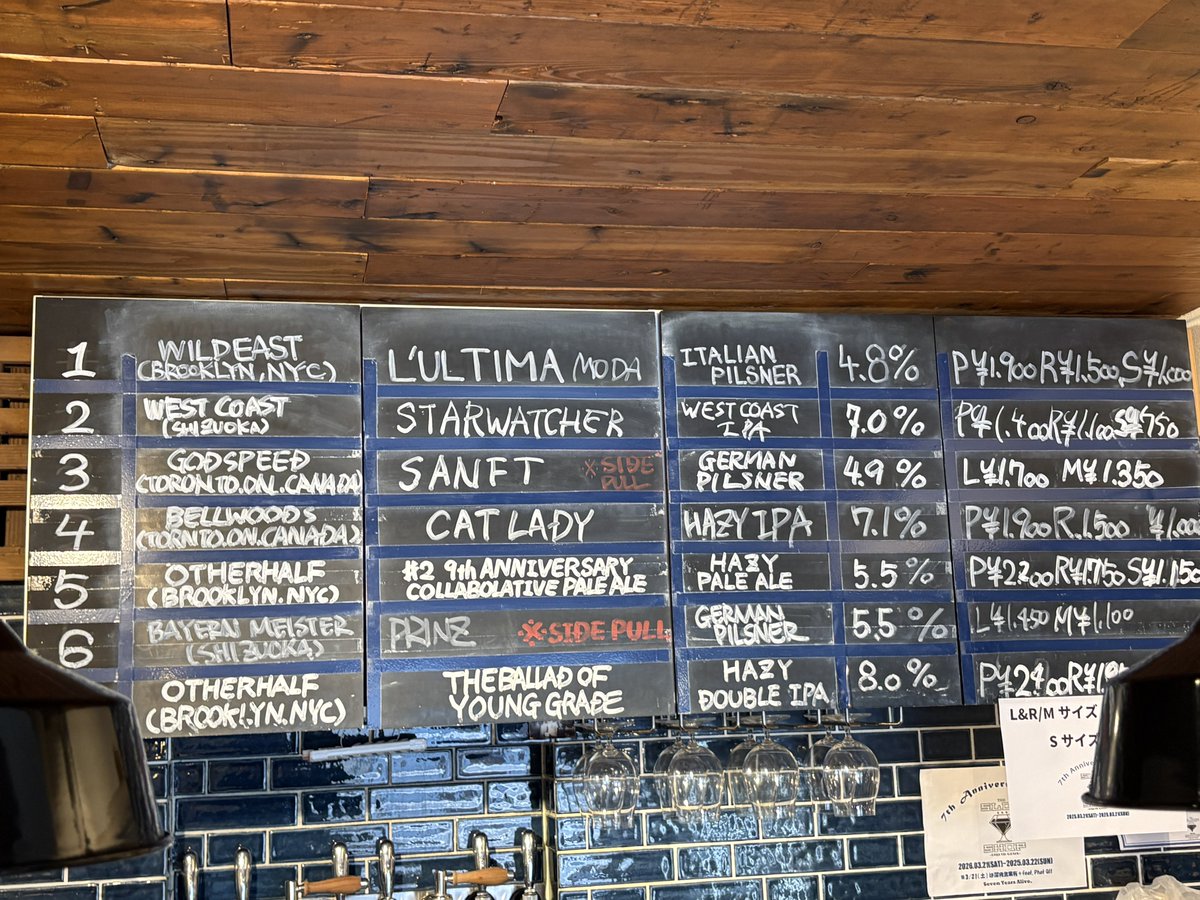 1 WILD EAST (BROOKLYN, NYC) L'ULTIMA MODA ITALIAN PILSNER 4.8% P¥1.900 R¥1.500 S¥1.000
2 WEST COAST (SHIZUOKA) STARWATCHER WEST COAST IPA 7.0% P¥1.400 R¥1.100 S¥750
3 GODSPEED (TORONTO.ON.CANADA) SANFT ※SIDE PULL GERMAN PILSNER 4.9% L¥1.700 M¥1.350
4 BELLWOODS (TORNTO.ON.CANADA) CAT LADY HAZY IPA 7.1% P¥1.900 R.1.500 ¥1.000
5 OTHERHALF (BROOKLYN.NYC) #2 9th ANNIVERSARY COLLABOLATIVE PALE ALE HAZY PALE ALE 5.5% P¥2.200 R¥1.750 S¥1.150
6 BAYERN MEISTER (SHIZUOKA) PRINZ ※SIDE PULL GERMAN PILSNER 5.5% L¥1.450 M¥1.100
OTHERHALF (BROOKLYN.NYC) THE BALLAD OF YOUNG GRADE HAZY DOUBLE IPA 8.0%
L&R/M サイズ
S サイズ
7th Anniversary
THE
SHOP
2026.03.21(SAT)-2025.03.22(SUN)
Seven Years Alive.